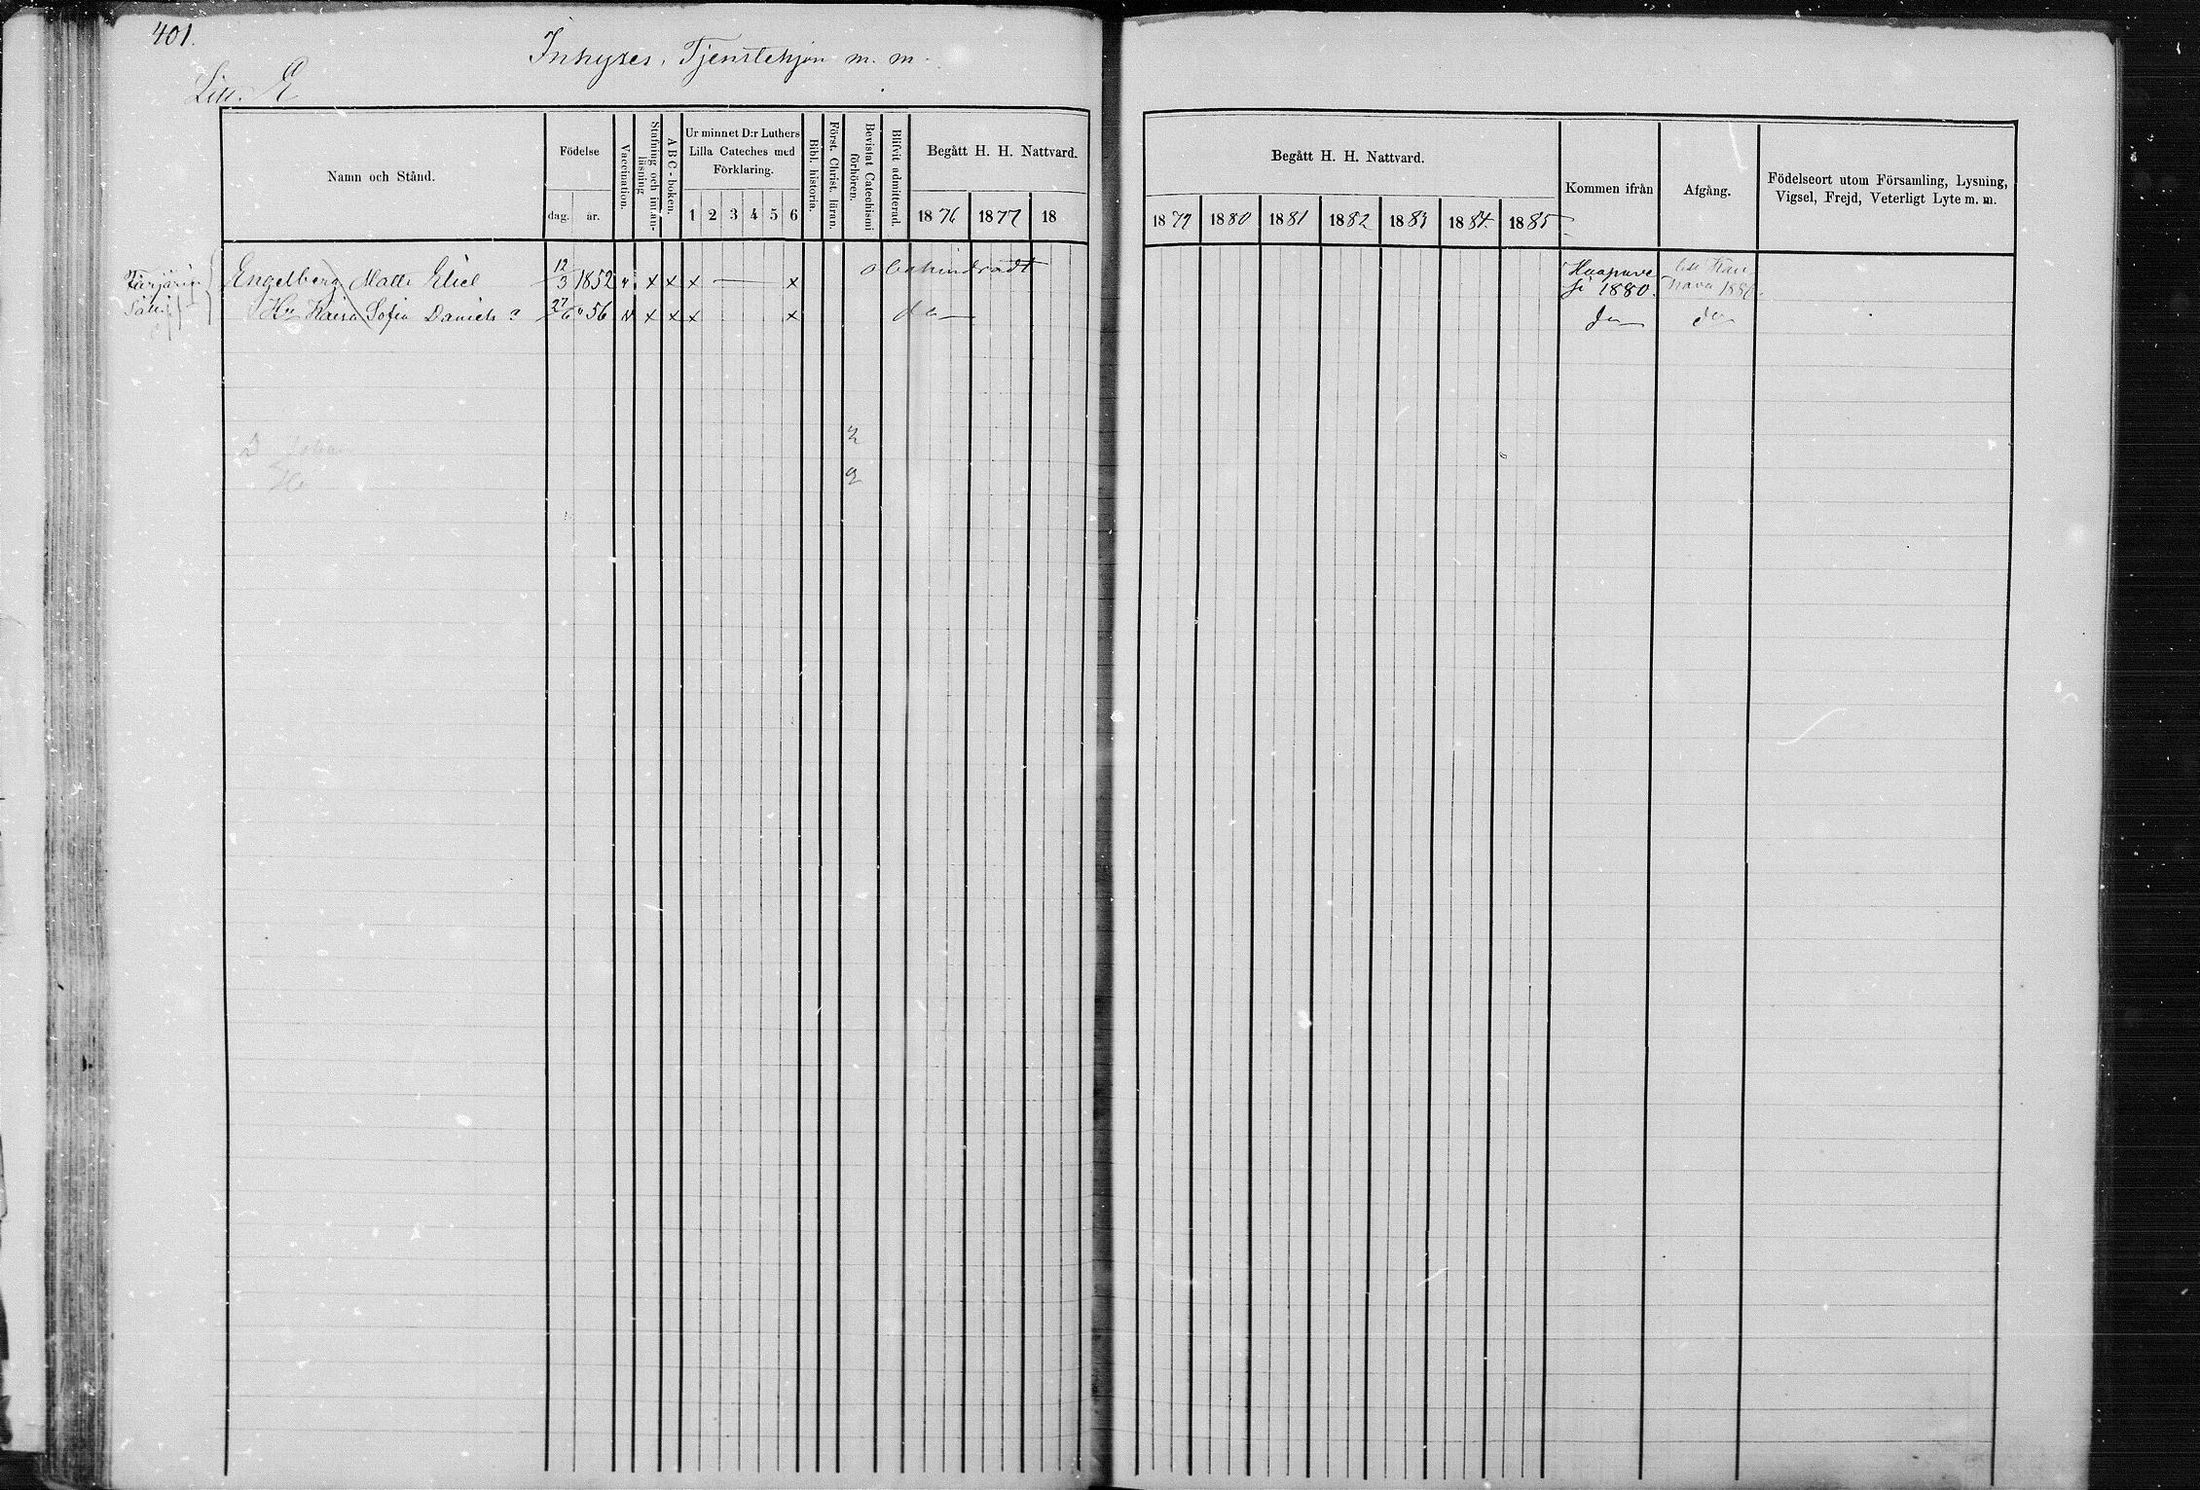 401.
Inhyses, Tjenstehjon m. m.
Litt. E
Namn och Stånd.
Födelse
dag. år.
Vaccination.
Stafning och innan-
läsning
A B C - boken.
Ur minnet D:r Luthers
Lilla Cateches med
Förklaring.
1 2 3 4 5 6
Bibl. historia.
Först. Christ. läran.
Bevistat Catechismi
förhören.
Blifvit admitterad.
Begått H. H. Nattvard.
1876 1877 18
Begått H. H. Nattvard.
1879 1880 1881 1882 1883 1884 1885
Kommen ifrån
Afgång.
Födelseort utom Församling, Lysning,
Vigsel, Frejd, Veterligt Lyte m. m.
Engelberg Matts Eliel 12/3 1852 v x x x — x obehindradt Haapave
si 1880.
Hu Kaisa Sofia Daniels 27/6 " 56 v x x x x do do do